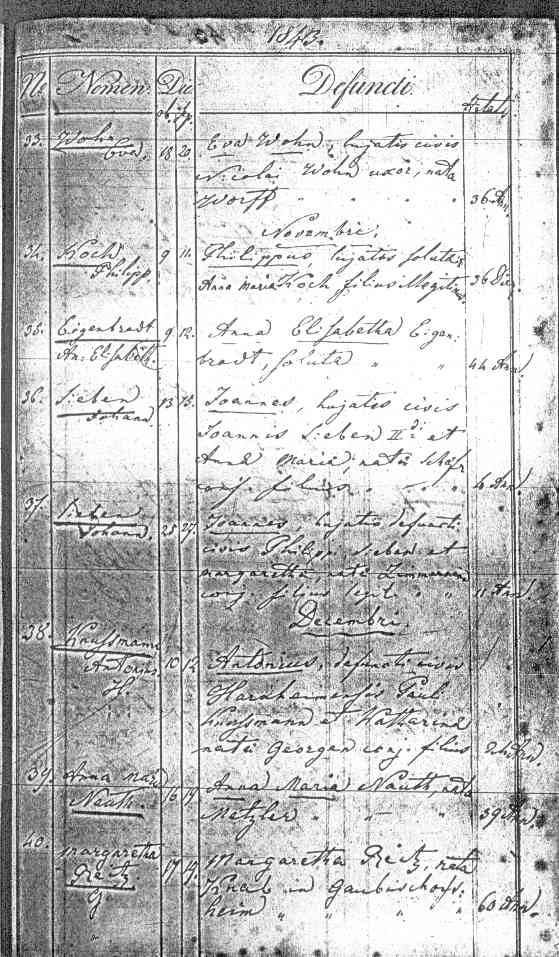 1843.
No Nomen. Die Defuncti. Aetatis
ob. sep.
33. Wohn Eva. 18 20. Eva Wohn, hujatis civis
Nicolai Wohn uxor, nata
Worff " " " 36 An.
Novembri.
34. Koch Philipp. 9 11. Philippus, hujatis solutae
Anna Maria Koch filius 36 Die.
35. Eigenbrodt 9 12. Anna Elisabetha Eigen-
An: Elisabeth brodt, soluta " " 44 Ann.
36. Sieben Johann 13 15. Joannes, hujatis civis
Joannis Sieben II di et
Anna Maria, natae Schäfr
conj. filius " " " 4 Ann.
37. Sieben Johann. 25 27. Joannes, hujatis defuncti
civis Philippi Sieben et
Margaretha, natae Zimmermann
conj. filius " " 11 Ann.
Decembri.
38. Kaussmann Antonius 10 12. Antonius, defuncti civis
H. Harxheimensis Pauli
Kaussmann et Katharina
natae Georgen conj. filius 24 Ann.
39. Anna Mar. Nauth. 16 19. Anna Maria Nauth, nata
Metzler " " " 59 Ann.
40. Margaretha Reitz 17 19. Margaretha Reitz, nata
G Knab in Gaubischofs-
heim " " " " 60 Ann.